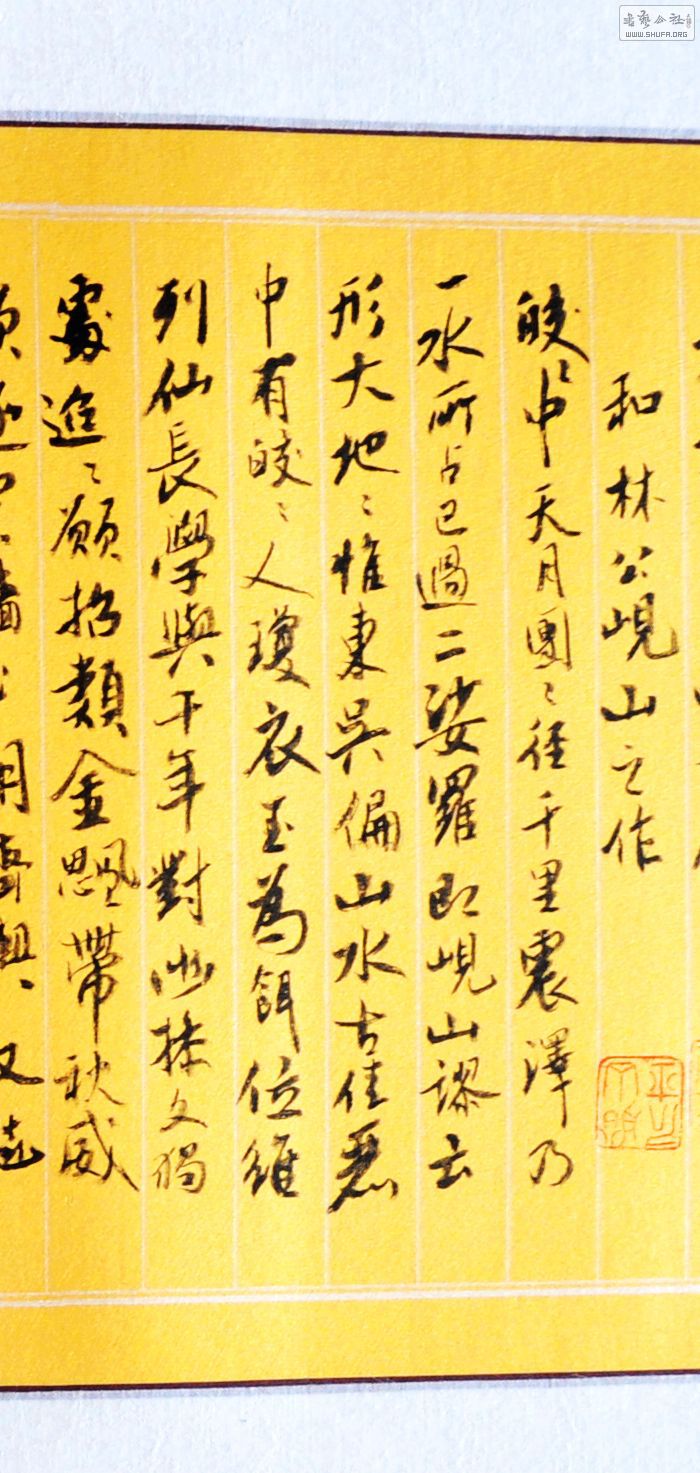 書藝公社
WWW.SHUFA.ORG
和林公峴山之作
皎〻中天月團〻徑千里震澤乃
一水所占已過二娑羅即峴山謬云
形大地〻惟東吳偏山水古佳麗
中有皎〻人瓊衣玉為餌位維
列仙長學與千年對幽操久獨
處迢〻願招類金颸帶秋威